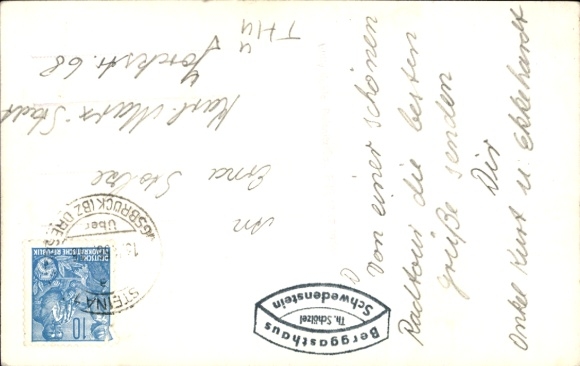 Von einer schönen
Radtour die besten
Grüße senden
Dir
Onkel Kurt u. Ekkehardt
An
Erna Stolze
Karl-Marx-Stadt
Yorckstr. 68
Berggasthaus
Th. Schölzel
Schwedenstein
STEINA
über
DEUTSCHE
DEMOKRATISCHE REPUBLIK
10